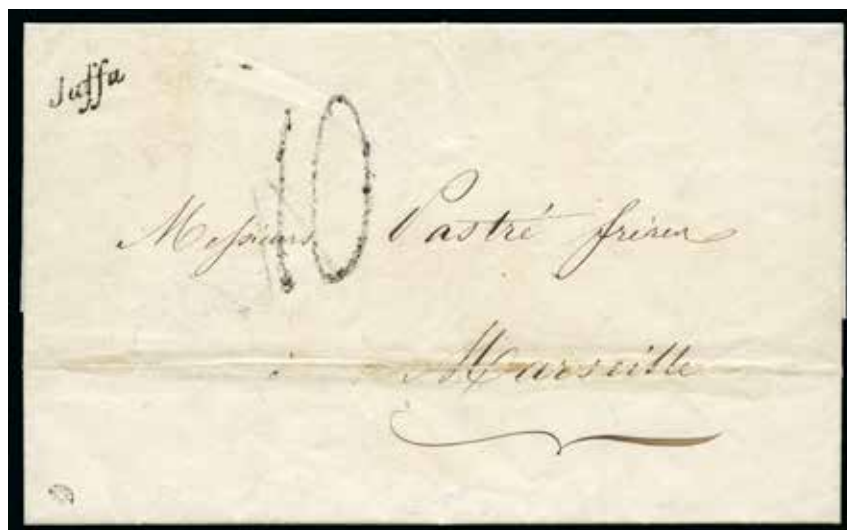 Jaffa
10
Messieurs Pastré frères
à Marseille